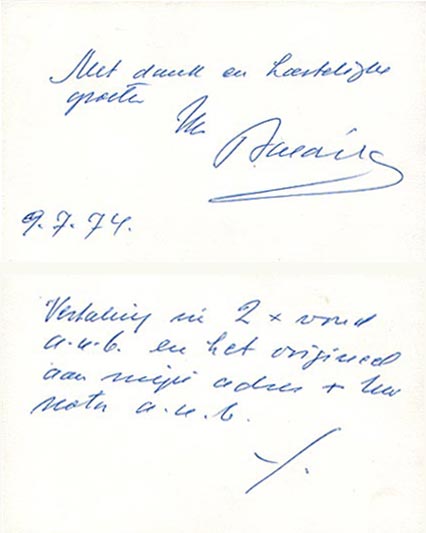 Met dank en hartelijke
groeten
Uw
9.7.74.
Vertaling in 2 x voud
a.u.b. en het origineel
aan mijn adres + Uw
nota a.u.b.